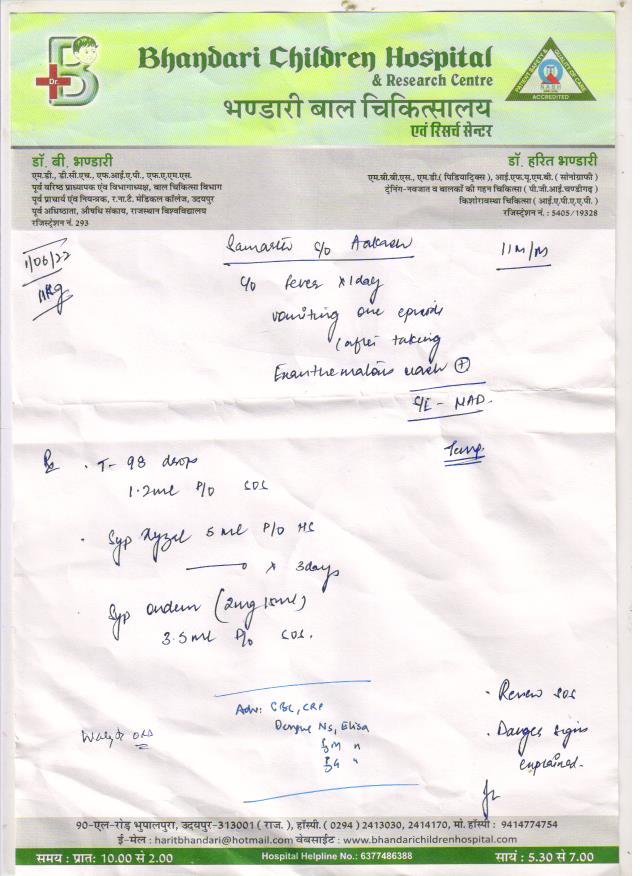 Dr.
B
Bhandari Children Hospital
& Research Centre
भण्डारी बाल चिकित्सालय
एवं रिसर्च सेन्टर
PATIENT SAFETY & QUALITY OF CARE
ACCREDITED
डॉ. बी. भण्डारी
एम.डी., डी.सी.एच., एफ.आई.ए.पी., एफ.ए.एम.एस.
पूर्व वरिष्ठ प्राध्यापक एंव विभागाध्यक्ष, बाल चिकित्सा विभाग
पूर्व प्राचार्य एंव नियन्त्रक, र.ना.टै. मेडिकल कॉलेज, उदयपुर
पूर्व अधिष्ठाता, औषधि संकाय, राजस्थान विश्वविद्यालय
रजिस्ट्रेशन नं. 293
डॉ. हरित भण्डारी
एम.बी.बी.एस., एम.डी.( पिडियाट्रिक्स ), आई.एफ.यू.एम.बी. ( सोनोग्राफी )
ट्रेनिंग-नवजात व बालकों की गहन चिकित्सा ( पी.जी.आई.चण्डीगढ़ )
किशोरावस्था चिकित्सा ( आई.ए.पी.ए.ए.पी. )
रजिस्ट्रेशन नं. : 5405/19328
1/06/22
c/o Aakash
11M/M
c/o fever x 1day
vomiting one episode
(after taking
Exanthematous rash (+)
S/E - NAD.
Temp
Rx
. T- 98 drops
1.2ml P/O SOS
. Syp Xyzal 5ml P/O HS
x 3days
Syp ondem (2mg/5ml)
3.5ml P/o SOS.
Adv: CBC, CRP
Dengue NS, Elisa
IgM "
IgG "
ORS
. Review SOS
. Danger signs
explained.
90-एल-रोड़ भुपालपुरा, उदयपुर-313001 ( राज. ), हॉस्पी. ( 0294 ) 2413030, 2414170, मो. हॉस्पी : 9414774754
ई-मेल : haritbhandari@hotmail.com वेबसाईट : www.bhandarichildrenhospital.com
समय : प्रातः 10.00 से 2.00
Hospital Helpline No.: 6377486388
सायं : 5.30 से 7.00